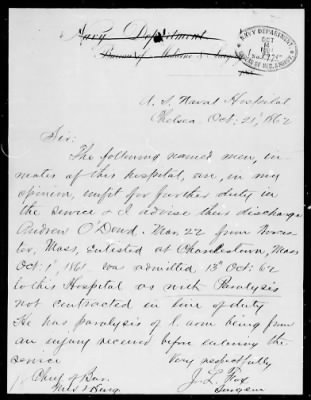 Navy Department
Bureau of Medicine & Surgery
NAVY DEPARTMENT
OCT
1862
U. S. Naval Hospital
Chelsea Oct. 21st, 1862
Sir:
The following named men, in-
mates of this hospital, are, in my
opinion, unfit for further duty in
the service & I advise their discharge
Andrew O'Dowd. Man. 22 from
Mass. Enlisted at Charlestown, Mass
Oct. 1st 1861. was admitted 13th Oct. 62
to this Hospital as with Paralysis
not contracted in line of duty
He has paralysis of l. arm being from
an injury received before entering the
service
Very respectfully
J. L. Fox
Surgeon
Chief of Bur.
Med & Surg.